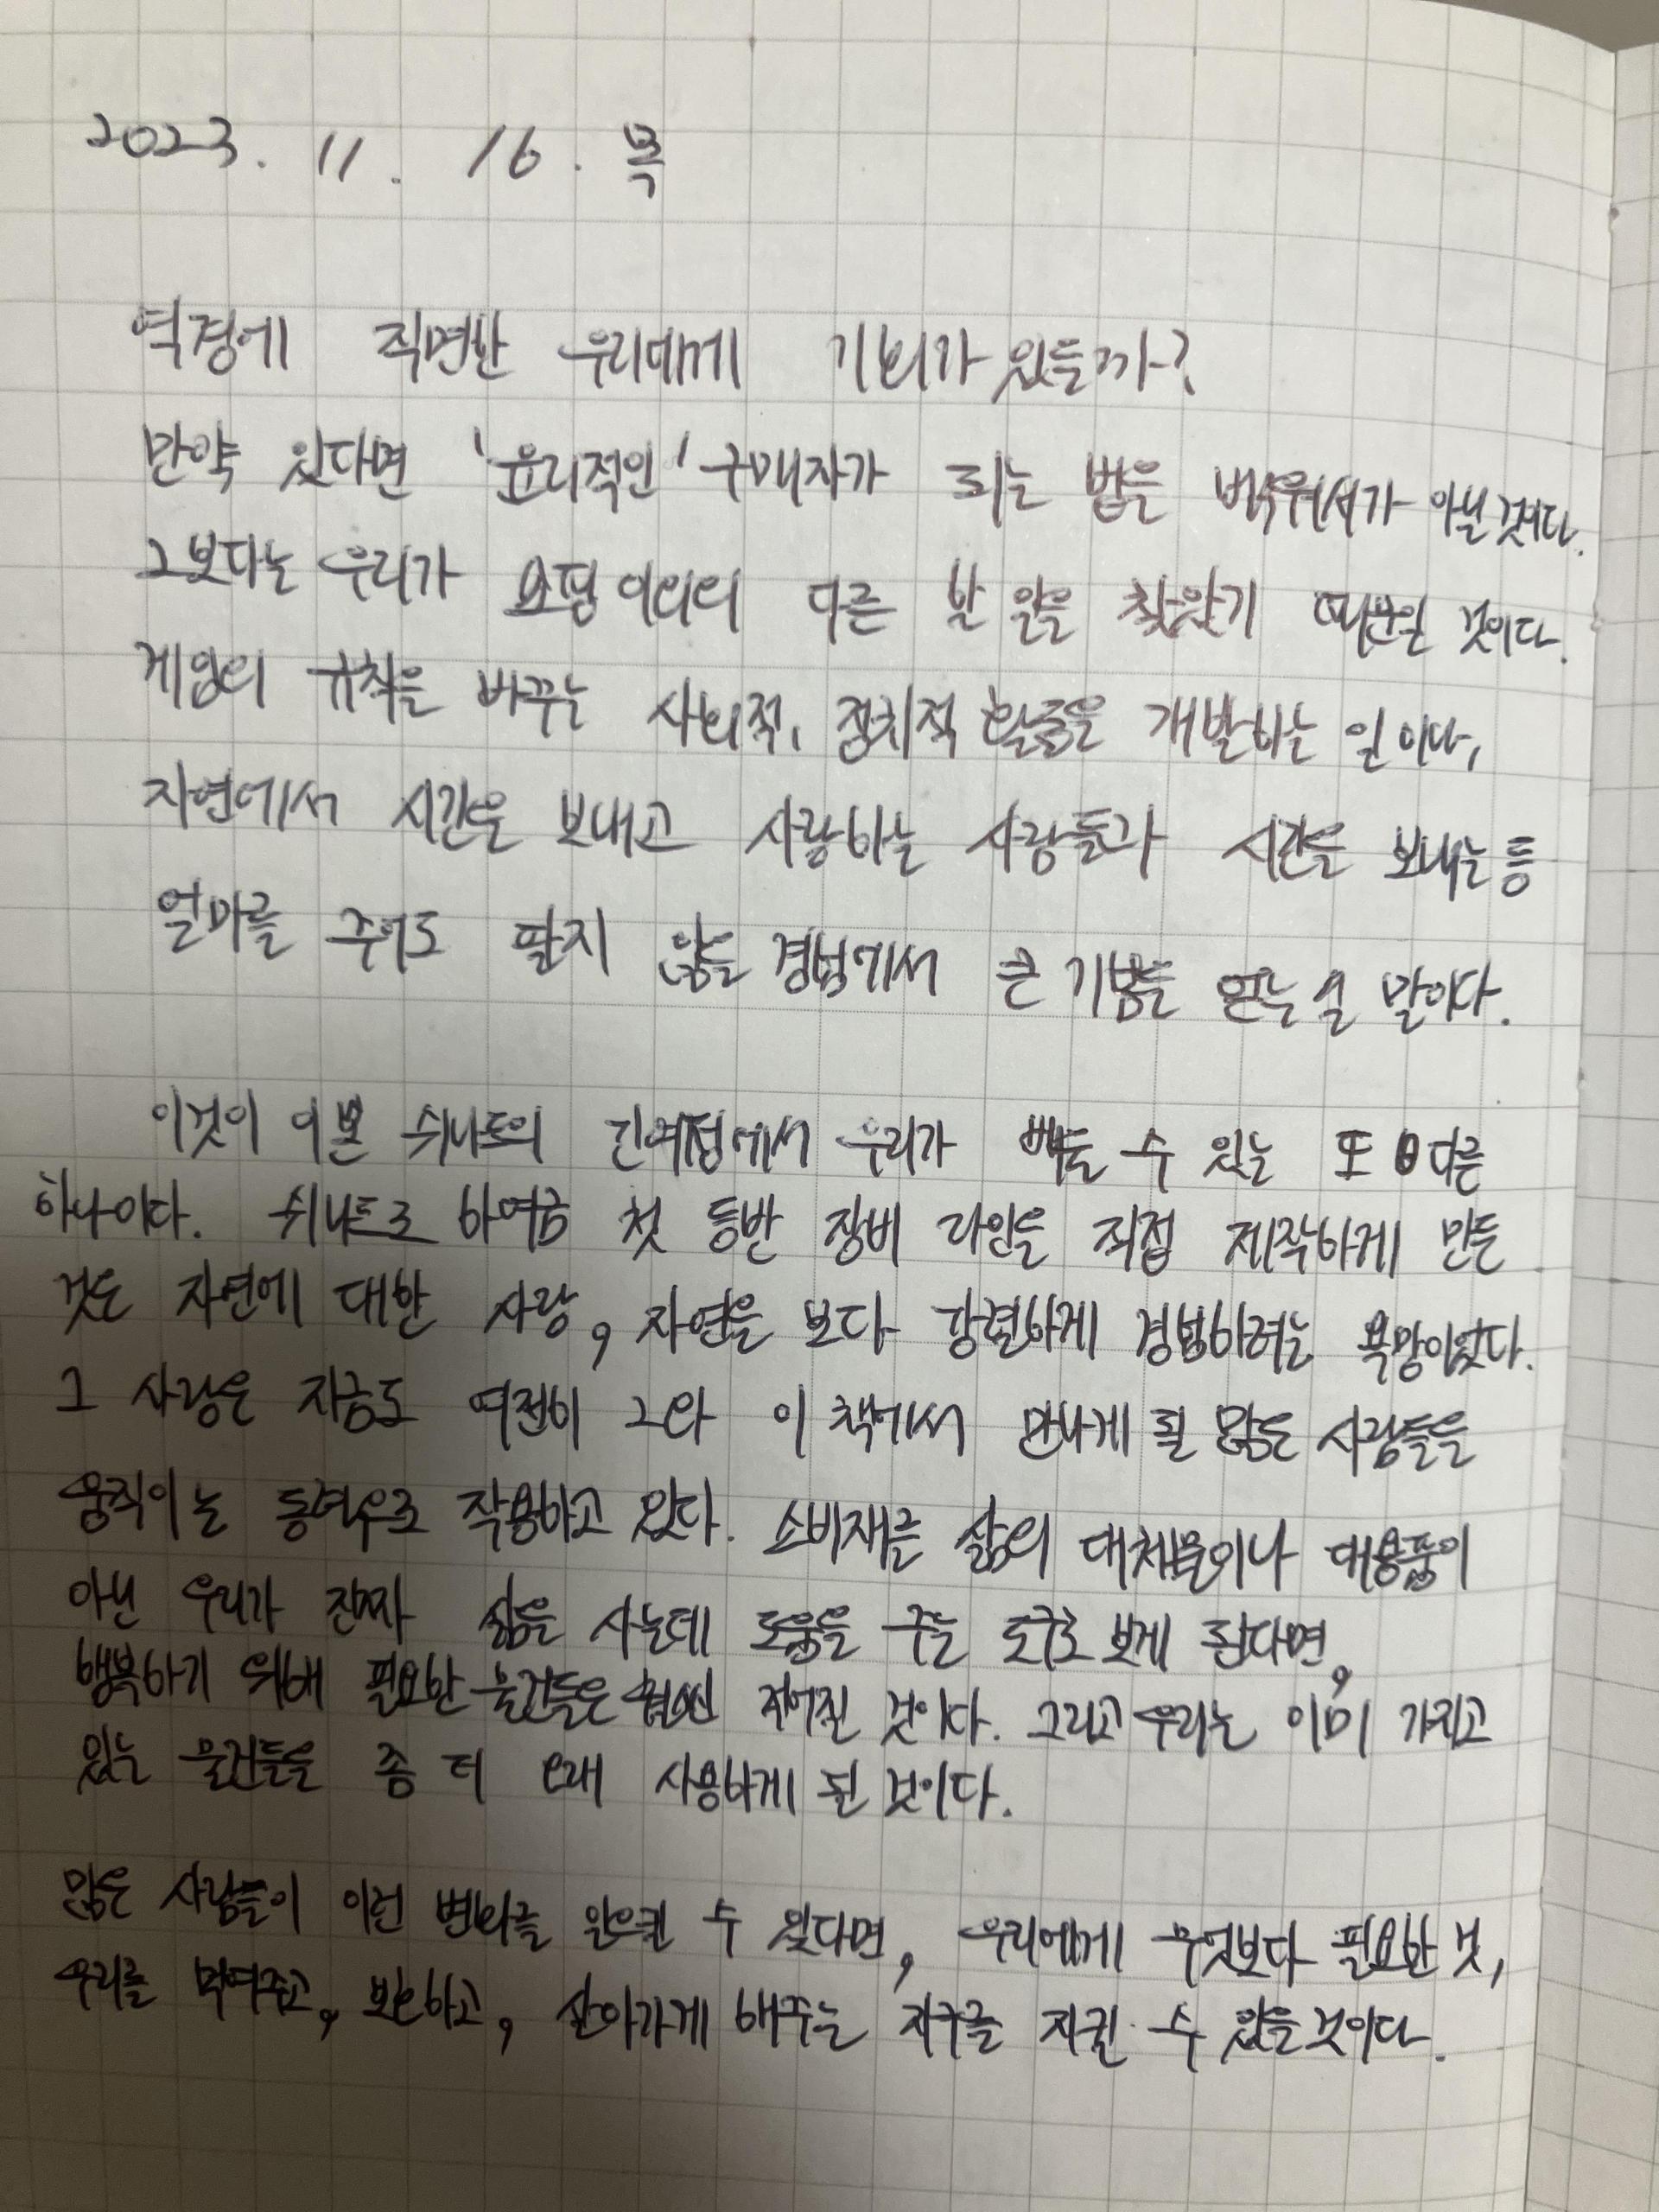 2023. 11. 16. 목
역경에 직면한 우리에게 기회가 있을까?
만약 있다면 '윤리적인' 구매자가 되는 법을 배워서가 아닐 것이다.
그보다는 우리가 쇼핑 이외의 다른 할 일을 찾았기 때문일 것이다.
게임의 규칙을 바꾸는 사회적, 정치적 활동을 개발하는 일이다,
자연에서 시간을 보내고 사랑하는 사람들과 시간을 보내는 등
얼마를 주어도 팔지 않을 경험에서 큰 기쁨을 얻는 일 말이다.
이것이 이본 쉬나드의 관점에서 우리가 배울 수 있는 또 다른
하나이다. 쉬나드로 하여금 첫 등반 장비 라인을 직접 제작하게 만든
것은 자연에 대한 사랑, 자연을 보다 강렬하게 경험하려는 욕망이었다.
그 사랑은 지금도 여전히 그와 이 책에서 만나게 될 많은 사람들을
움직이는 동력으로 작용하고 있다. 소비재를 삶의 대체물이나 대용품이
아닌 우리가 진짜 삶을 사는데 도움을 주는 도구로 보게 된다면,
행복하기 위해 필요한 물건들은 훨씬 적어질 것이다. 그리고 우리는 이미 가지고
있는 물건들을 좀 더 오래 사용하게 될 것이다.
많은 사람들이 이런 변화를 일으킬 수 있다면, 우리에게 무엇보다 필요한 것,
우리를 먹여주고, 보호하고, 살아가게 해주는 지구를 지킬 수 있을 것이다.